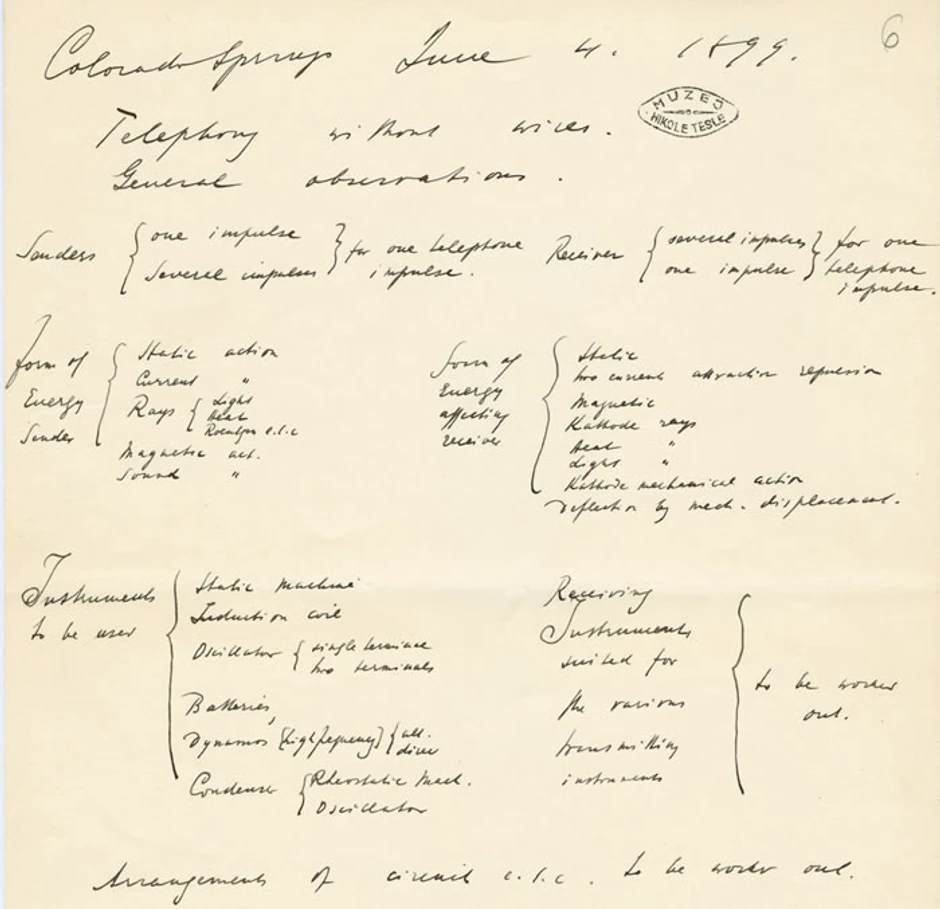 6
Colorado Springs June 4. 1899.
MUZEJ
NIKOLE TESLE
Telephony without wires.
General observations.
Senders { one impulse
Several impulses } for one telephone
impulse.
Receiver { several impulses
one impulse } for one
telephone
impulse.
Form of
Energy
Sender
{ Static action
Current "
Rays { Light
Heat
Roentgen e.t.c
Magnetic act.
Sound "
Form of
Energy
affecting
receiver
{ Static
two currents attraction repulsion
Magnetic
Kathode rays
Heat "
Light "
Kathode mechanical action
Deflection by mech. displacement.
Instruments
to be used
{ Static machine
Induction coil
Oscillator { single terminal
two terminals
Batteries,
Dynamos [high frequency] { alt.
direct
Condenser { Rheostatic Mach.
Oscillator
Receiving
Instruments
suited for
the various
transmitting
instruments
} to be worked
out.
Arrangements of circuit e.t.c. to be worked out.